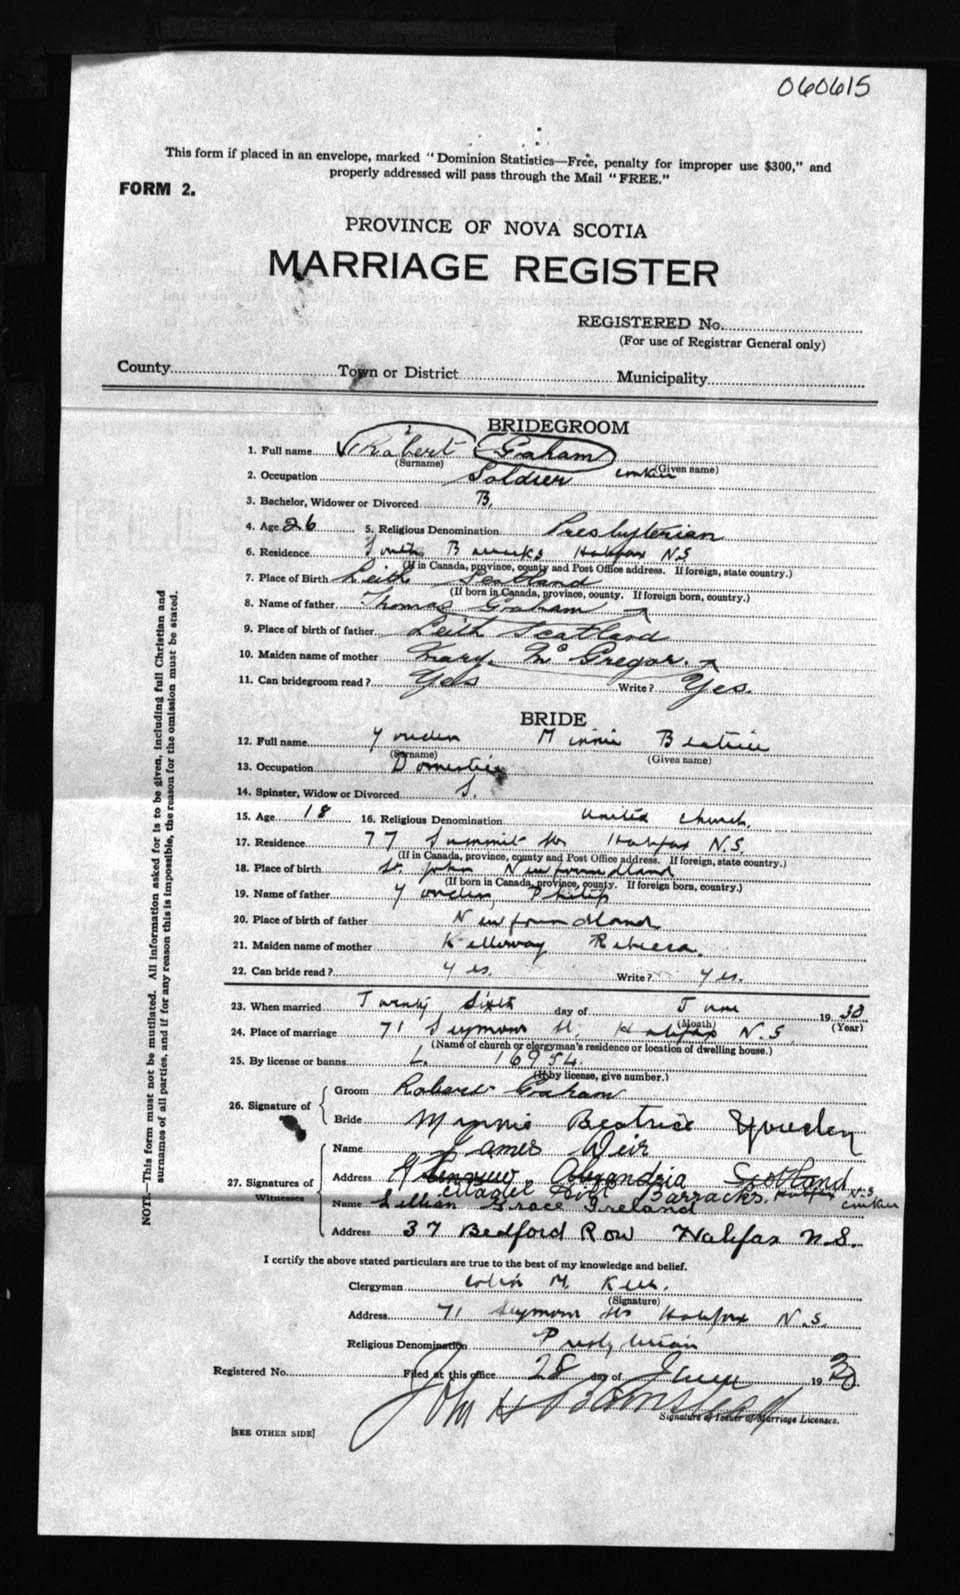 060615
This form if placed in an envelope, marked "Dominion Statistics—Free, penalty for improper use $300," and
properly addressed will pass through the Mail "FREE."
FORM 2.
PROVINCE OF NOVA SCOTIA
MARRIAGE REGISTER
REGISTERED No.
(For use of Registrar General only)
County Town or District Municipality
BRIDEGROOM
1. Full name Robert Graham
(Surname) (Given name)
2. Occupation Soldier
3. Bachelor, Widower or Divorced B.
4. Age 26 5. Religious Denomination Presbyterian
6. Residence Halifax N.S
(If in Canada, province, county and Post Office address. If foreign, state country.)
7. Place of Birth Leith Scotland
(If born in Canada, province, county. If foreign born, country.)
8. Name of father Thomas Graham
9. Place of birth of father Leith Scotland
10. Maiden name of mother Mary Mc Gregor.
11. Can bridegroom read? Yes Write? Yes.
BRIDE
12. Full name Youden Minnie Beatrice
(Surname) (Given name)
13. Occupation Domestic
14. Spinster, Widow or Divorced S.
15. Age 18 16. Religious Denomination United Church.
17. Residence 77 Summit St Halifax N.S.
(If in Canada, province, county and Post Office address. If foreign, state country.)
18. Place of birth St. John Newfoundland
(If born in Canada, province, county. If foreign born, country.)
19. Name of father Youden, Philip
20. Place of birth of father Newfoundland
21. Maiden name of mother Kelloway Rebecca.
22. Can bride read? Yes. Write? Yes.
23. When married Twenty Sixth day of June 19 30
(Month) (Year)
24. Place of marriage 71 Seymour St. Halifax N.S.
(Name of church or clergyman's residence or location of dwelling house.)
25. By license or banns L. 16954.
(If by license, give number.)
26. Signature of Groom Robert Graham
Bride Minnie Beatrice Youden
27. Signatures of Witnesses
Name James Weir
Address Alexandria Scotland
Barracks. Halifax N.S
Name Lillian Grace Ireland
Address 37 Bedford Row Halifax N.S.
I certify the above stated particulars are true to the best of my knowledge and belief.
Clergyman Colin M. Kerr.
(Signature)
Address 71 Seymour St Halifax N.S.
Religious Denomination Presbyterian
Registered No. Filed at this office 28 day of June 19 30
Signature of Issuer of Marriage Licenses.
[SEE OTHER SIDE]
NOTE.—This form must not be mutilated. All information asked for is to be given, including full Christian and
surnames of all parties, and if for any reason this is impossible, the reason for the omission must be stated.